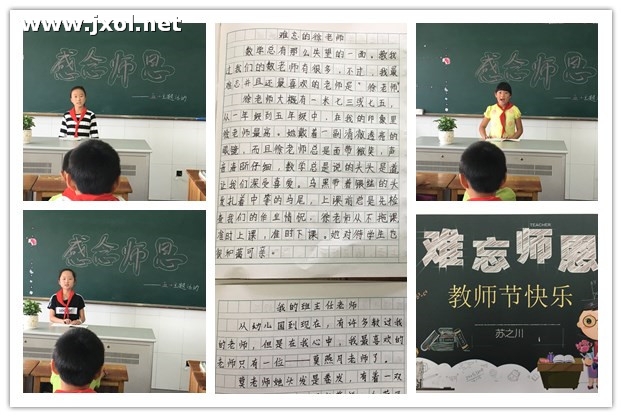 www.jxol.net
感念师恩
难忘的徐老师
数学总有那么失望的一面。教我
过我们的数老师有很多,不过,我最
难忘并且还最喜欢的老师是"徐老师"
徐老师大概有一米七三或七五,
从一年级到五年级中,在我的印象里
徐老师最高。她戴着一副清很透亮的
眼镜,而且徐老师总是面带微笑,声
数学总是说的头头是道
让我们深受喜爱。乌黑带着
发扎着中等的马尾,上课前总是先检
查我们的作业情况,徐老师从不拖课
准时上课,准时下课。她对待学生也
感念师恩
感念师恩
我的班主任老师
从幼儿园到现在,有许多教过我
的老师,但是在我心中,我最喜欢的
老师只有一位——夏燕月老师了。
夏老师她头发是卷发,有着一双
TEACHER
难忘师恩
教师节快乐
苏之川